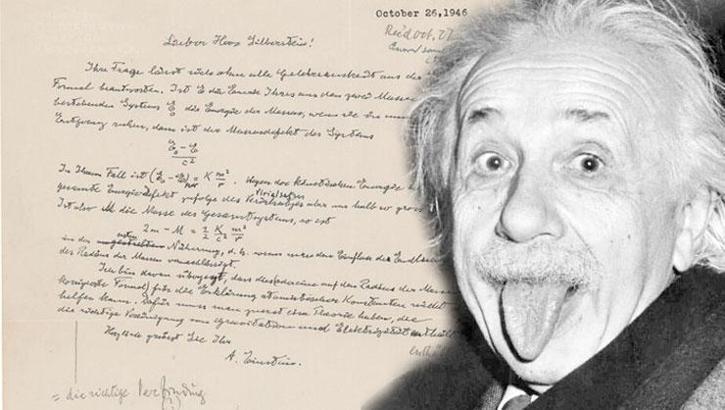 October 26, 1946
Rec'd Oct. 27
Lieber Herr Silberstein!
Ihre Frage lässt sich ohne alle Gelehrsamkeit aus der
Formel beantworten. Ist E die Energie Ihres aus den zwei Massen
bestehenden Systems, E₀ die Energie der Massen, wenn sie in
Entfernung ruhen, dann ist der Massendefekt des Systems
E₀ - E
c²
In Ihrem Fall ist (E₀ - E) = K m²/r. Wegen der kinetischen Energie
Virialsatzes
gesamte Energiedefekt zufolge des aber nur halb so gross
Ist also M die Masse des Gesamtsystems, so ist
2m - M = 1/2 K/c² m²/r
in der Näherung, d. h. wenn man den Einfluss der
des Radius der Massen vernachlässigt.
Ich bin davon überzeugt, dass auf den Radius der Massen
Formel) für die Erklärung atomistischer Konstanten nicht
helfen kann. Dafür muss man zuerst eine Theorie haben, die
die richtige Vereinigung von Gravitation und Elektrizität enthält
Herzlich grüsst Sie Ihr
A. Einstein.
= die richtige Verbindung